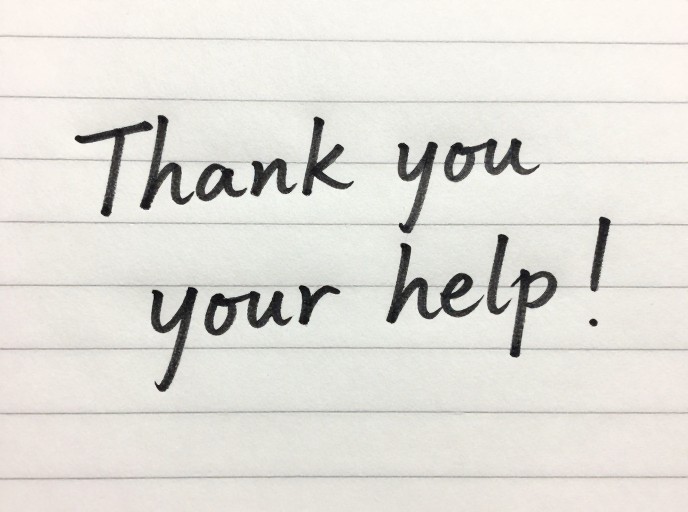 Thank you
your help!